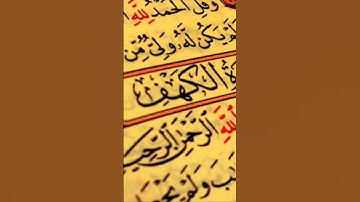 وَقُلِ الْحَمْدُ لِلَّهِ
يَكُن لَّهُ وَلِيٌّ مِّنَ
الْكَهْفِ
اللَّهِ الرَّحْمَنِ الرَّحِيمِ
وَلَمْ يَجْعَل